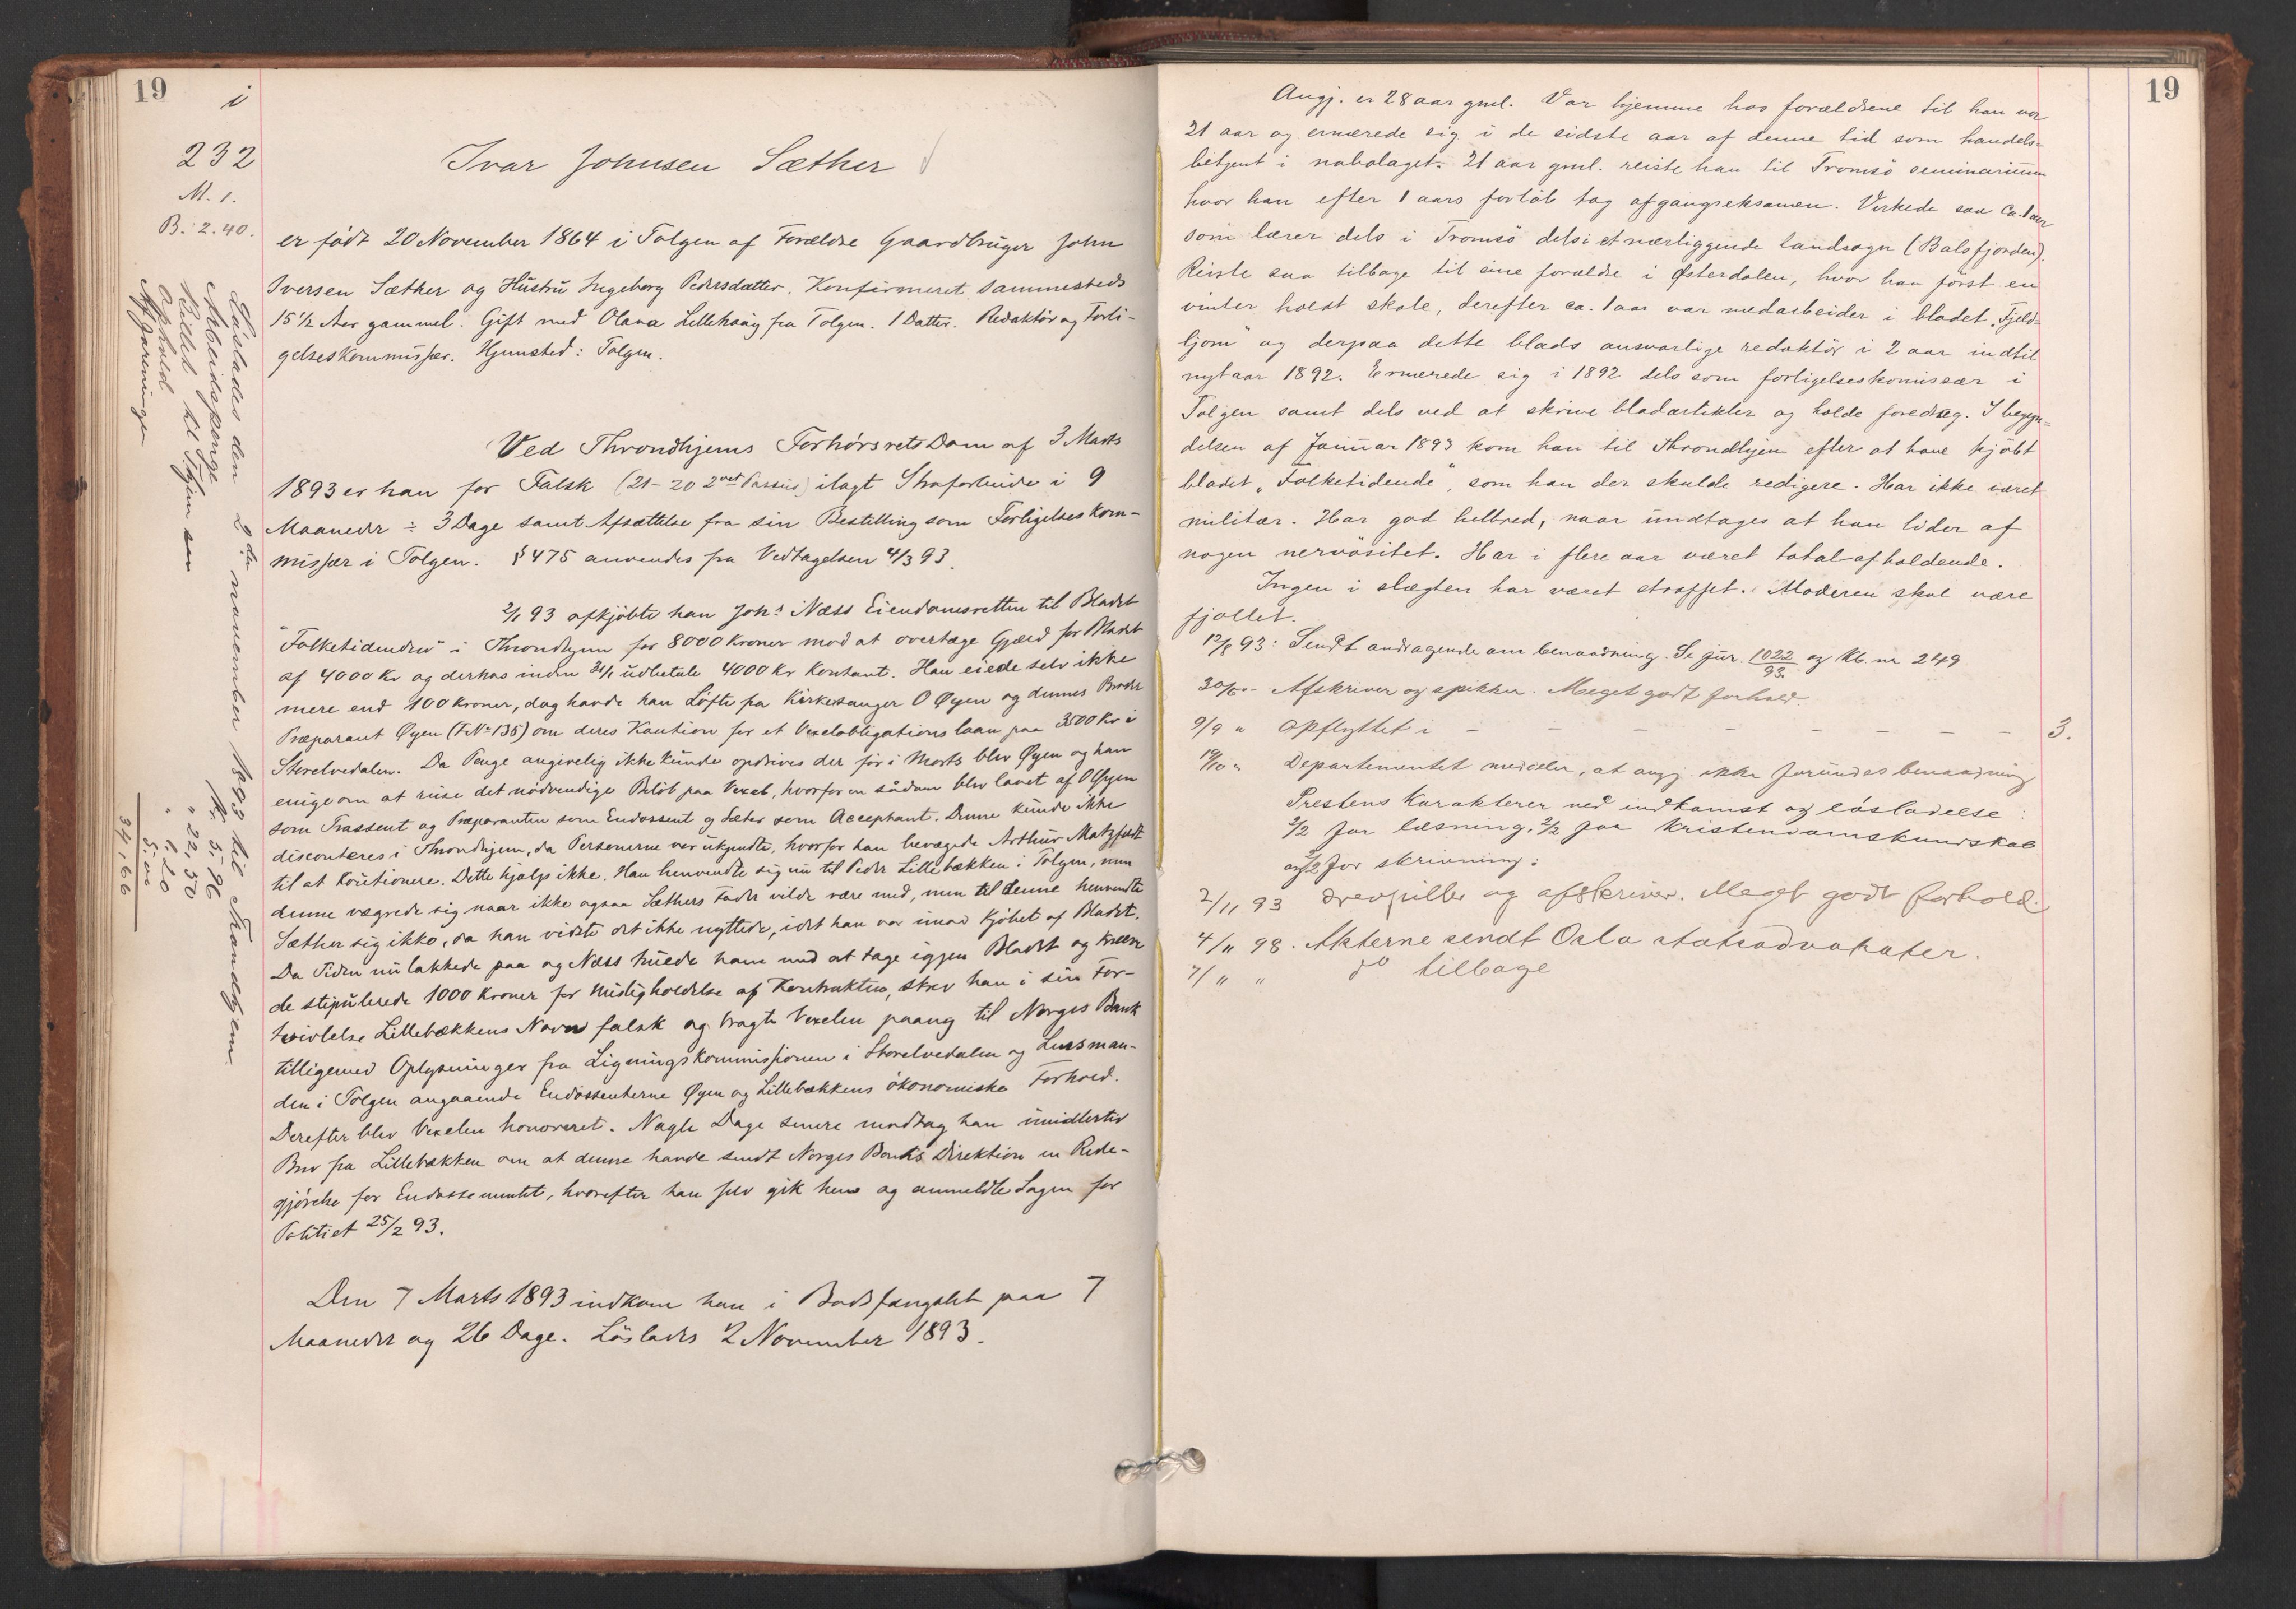 19
i
232
M. 1.
B. 2.40.
Ivar Johnsen Sæther
er født 20 November 1864 i Tolgen af Forældre Gaardbruger John
Iversen Sæther og Hustru Ingeborg Pedersdatter. Konfirmeret sammesteds
15 1/2 Aar gammel. Gift med Olava Lillehaug fra Tolgen. 1 Datter. Redaktör og Forli-
gelseskommissær. Hjemsted: Tolgen.
Ved Throndhjems Forhörsrets Dom af 3 Marts
1893 er han for Falsk (21-20 2det Passus) ilagt Strafarbeide i 9
Maaneder ÷ 3 Dage samt Afsættelse fra sin Bestilling som Forligelseskom-
missær i Tolgen. § 475 anvendes fra Vedtagelsen 4/3 93.
2/1 93 afkjöbte han Johs Næss Eiendomsretten til Bladet
"Folketidenden" i Throndhjem for 8000 Kroner mod at overtage Gjæld for Bladet
af 4000 Kr og derhos inden 31/1 udbetale 4000 Kr kontant. Han eiede selv ikke
mere end 100 Kroner, dog havde han Löfte fra Kirkesanger O Øyen og dennes Broder
Præparant Øyen (F.No 135) om deres Kaution for et Vexelobligationslaan paa 3500 Kr i
Storelvedalen. Da Penge angivelig ikke kunde opdrives der för i Marts blev Øyen og han
enige om at reise det nödvendige Belöb paa Vexel, hvorfor en sådan blev lavet af O Øyen
som Trassent og Præparanten som Endossent og Sæther som Acceptant. Denne kunde ikke
disconteres i Throndhjem, da Personerne var ukjendte, hvorfor han bevægede Arthur Motzfeldt
til at kautionere. Dette hjalp ikke. Han henvendte sig nu til Peder Lillebækken i Tolgen, men
denne vægrede sig naar ikke ogsaa Sæthers Fader vilde være med, men til denne henvendte
Sæther sig ikke, da han vidste det ikke nyttede, idet han var imod Kjöbet af Bladet.
Da Tiden nu lakkede paa og Næss truede ham med at tage igjen Bladet og kræve
de stipulerede 1000 Kroner for Misligholdelse af Kontrakten, skrev han i sin For-
tvivlelse Lillebækkens Navn falsk og bragte Vexelen paany til Norges Bank
tilligemed Oplysninger fra Ligningskommissionen i Storelvedalen og Lensman-
den i Tolgen angaaende Endossenterne Øyen og Lillebækkens ökonomiske Forhold.
Derefter blev Vexelen honoreret. Nogle Dage senere modtog han imidlertid
Brev fra Lillebækken om at denne havde sendt Norges Banks Direktion en Rede-
gjörelse for Endossementet, hvorefter han selv gik hen og anmeldte Sagen for
Politiet 25/2 93.
Den 7 Marts 1893 indkom han i Bodsfængslet paa 7
Maaneder og 26 Dage. Löslades 2 November 1893.
Löslades den 2den november 1893 til Trondhjem.
Arbeidspenge kr. 5,96
Billet til Thjem " 22,50
Ophold " 1,20
Afsoningen 5,00
34,66
19
Angj. er 28 aar gml. Var hjemme hos forældrene til han var
21 aar og ernærede sig i de sidste aar af denne tid som handels-
betjent i nabolaget. 21 aar gml. reiste han til Tromsö seminarium
hvor han efter 1 aars forlöb tog afgangseksamen. Virkede saa ca. 1 aar
som lærer dels i Tromsö dels i et nærliggende landsogn (Balsfjorden).
Reiste saa tilbage til sine forældre i Østerdalen, hvor han först en
vinter holdt skole, derefter ca. 1 aar var medarbeider i bladet "Fjeld-
ljom" og derpaa dette blads ansvarlige redaktör i 2 aar indtil
nytaar 1892. Ernærede sig i 1892 dels som forligelseskomissær i
Tolgen samt dels ved at skrive bladartikler og holde foredrag. I begyn-
delsen af Januar 1893 kom han til Throndhjem efter at have kjöbt
bladet "Folketidende", som han der skulde redigere. Har ikke været
militær. Har god helbred, naar undtages at han lider af
nogen nervösitet. Har i flere aar været total afholdende.
Ingen i slægten har været straffet. Moderen skal være
fjollet.
12/8 93: Sendt andragende om benaadning. Se jur. 1022/93 og Kb. nr 249
30/8 - Afskriver og spikker. Meget godt forhold.
9/9 " Opflyttet i - - - - - - - 3.
19/10 " Departementet meddeler, at angj. ikke forundes benaadning
Prestens Karakterer ved indkomst og lösladelse:
2/2 for læsning, 2/2 for kristendomskundskab
og 2/2 for skrivning.
2/11 93 Drevpiller og afskriver. Meget godt forhold.
4/11 98. Akterne sendt Oslo statsadvokater.
7/ " " do tilbage